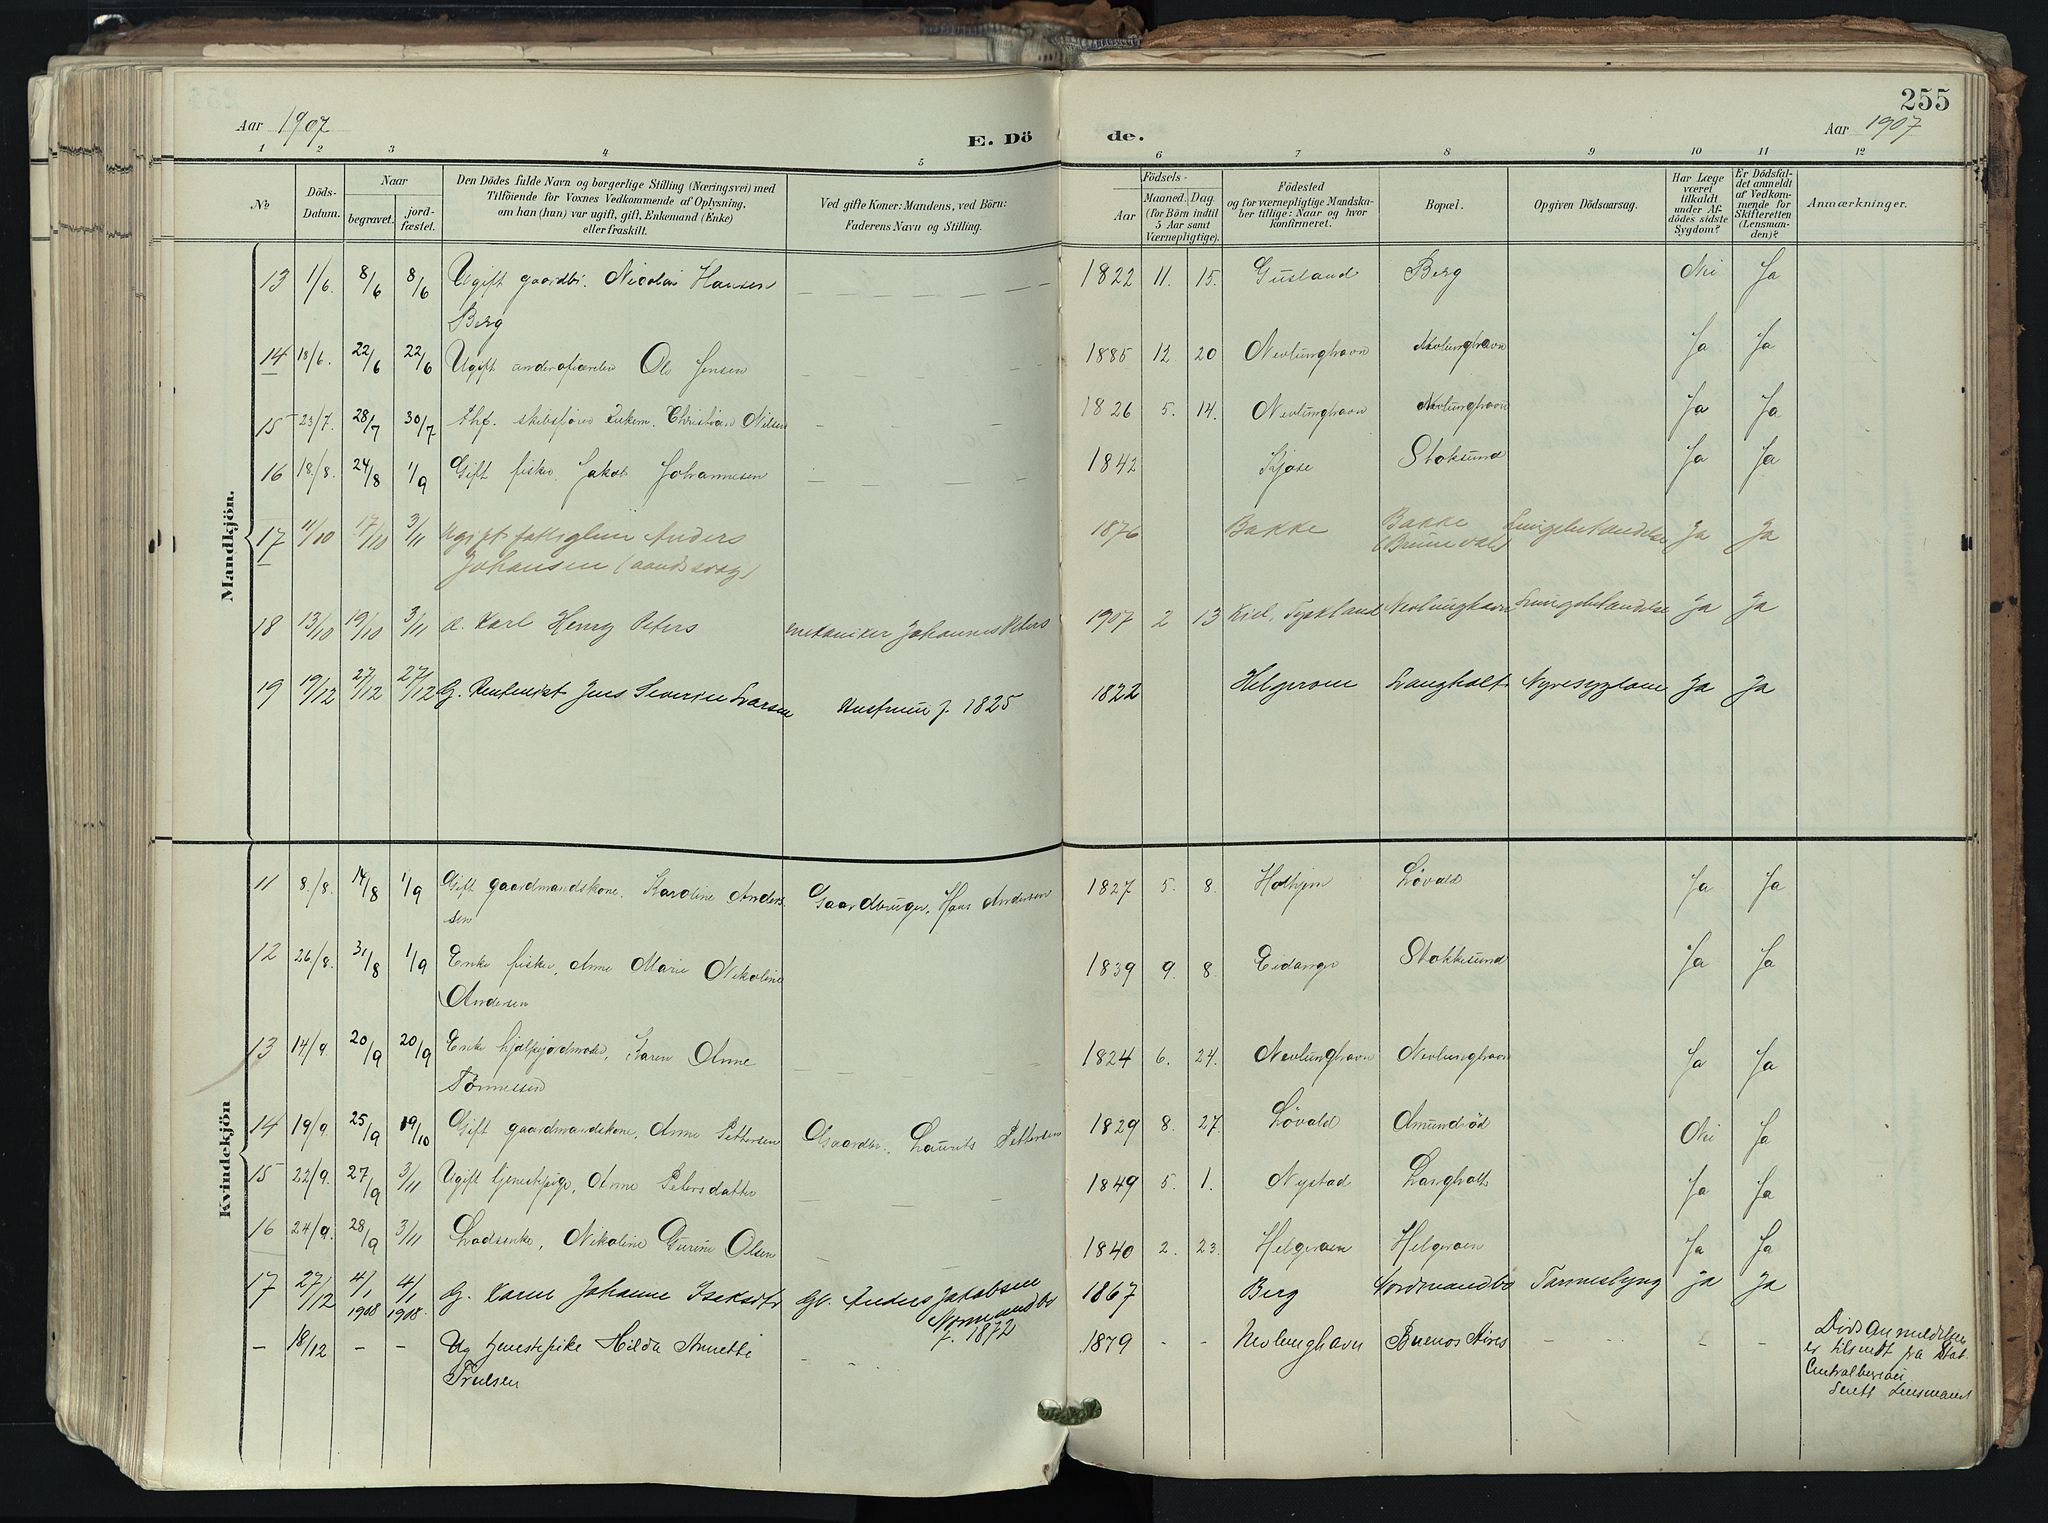 255
Aar 1907
E. Dö
de.
Aar 1907
1 2 3 4 5 6 7 8 9 10 11 12
№
Döds-
Datum.
Naar
begravet.
jord-
fæstet.
Den Dödes fulde Navn og borgerlige Stilling (Næringsvei) med
Tilföiende for Voxnes Vedkommende af Oplysning,
om han (hun) var ugift, gift, Enkemand (Enke)
eller fraskilt.
Ved gifte Koner: Mandens, ved Börn:
Faderens Navn og Stilling.
Födsels-
Aar
Maaned. Dag.
(for Börn indtil
5 Aar samt
Værnepligtige).
Födested
og for værnepligtige Mandska-
ber tillige: Naar og hvor
konfirmeret.
Bopæl.
Opgiven Dödsaarsag.
Har Læge
været
tilkaldt
under Af-
dödes sidste
Sygdom?
Er Dödsfal-
det anmeldt
af Vedkom-
mende for
Skifteretten
(Lensman-
den)?
Anmærkninger.
Mandkjön.
13 1/6. 8/6 8/6 Ugift gaardbr. Nicolai Hansen — — — — 1822 11. 15. Gusland Berg Nei Ja
Berg
14 18/6. 22/6 22/6 Ugift Ole Jensen — — — — 1885 12. 20 Nevlunghavn Nevlunghavn Ja Ja
15 23/7. 28/7 30/7 Ahf. skibsfører Enkem. Christian Nilsen — — — — 1826 5. 14. Nevlunghavn Nevlunghavn Ja Ja
16 18/8. 24/8 1/9 Gift fisker Jakob Johannesen — — — — 1842 Kjose Stoksund Ja Ja
17 11/10 17/10 3/11 Ugift fattiglem Anders 1876 Bakke Bakke Lungebetændelse Ja Ja
Johansen (aandssvag) (Brunevald)
18 13/10 19/10 3/11 d. Karl Henry Peters mekaniker Johannes Peters 1907 2 13 Kiel, Tyskland Nevlunghavn Lungebetændelse Ja Ja
19 19/12 27/12 27/12 G. Rentenist Jens Severin Larsen Hustruen f. 1825 1822 Helgeroen Langholt Nyresygdom Ja Ja
Kvindekjön
11 8./8. 14/8 1/9 Gift gaardmandskone, Karoline Anders- Gaardbruger, Hans Andersen 1827 5. 8. Holhjem Løvald Ja Ja
sen
12 26/8. 31/8 1/9 Enke fisker, Anne Marie Nikoline 1839 9. 8. Eidanger Stokksund Ja Ja
Andersen
13 14/9. 20/9 20/9 Enke hjælpejordmoder, Karen Anne — — — — 1824 6. 24. Nevlunghavn Nevlunghavn Ja Ja
Tønnessen
14 19/9. 25/9 19/10 Gift gaardmandskone, Anne Pettersen Gaardbr., Laurits Pettersen 1829 8. 27. Løvald Amundrød Nei Ja
15 22/9. 27/9 3/11 Ugift tjenestpige, Anne Petersdatter — — — 1849 5. 1. Nystad Langholt Ja Ja
16 24/9. 28/9 3/11 Lodsenke, Nikoline Gurine Olsen — — 1840 2. 23. Helgeroen Helgeroen Ja Ja
17 27/12 4/1 1908 4/1 1908. G. Karen Johanne Isaksdtr Gbr. Anders Jakobsen 1867 Berg Nordmandbo Tarmeslyng Ja Ja
f. 1872
— 18/12 — — Ug tjenestepike Hilda Annette — — 1879 — — Nevlunghavn Buenos Aires — — —
Trulsen
Dødsanmeldelsen
er tilsendt fra Stat.
Centralbureau
Sendt Lensmand